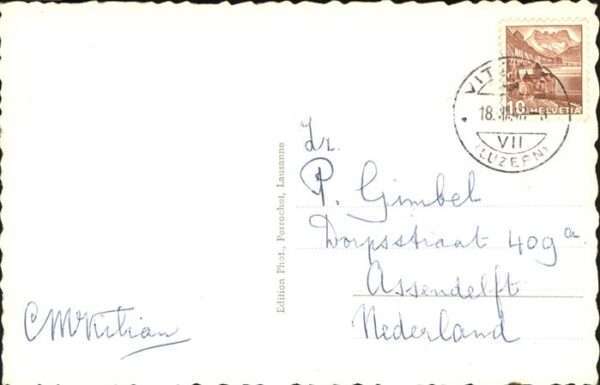 VIT
10 HELVETIA
18.
VII
(LUZERN)
Edition Phot., Perrochet, Lausanne
P. Gimbel
Dorpsstraat 409a
Assendelft
Nederland